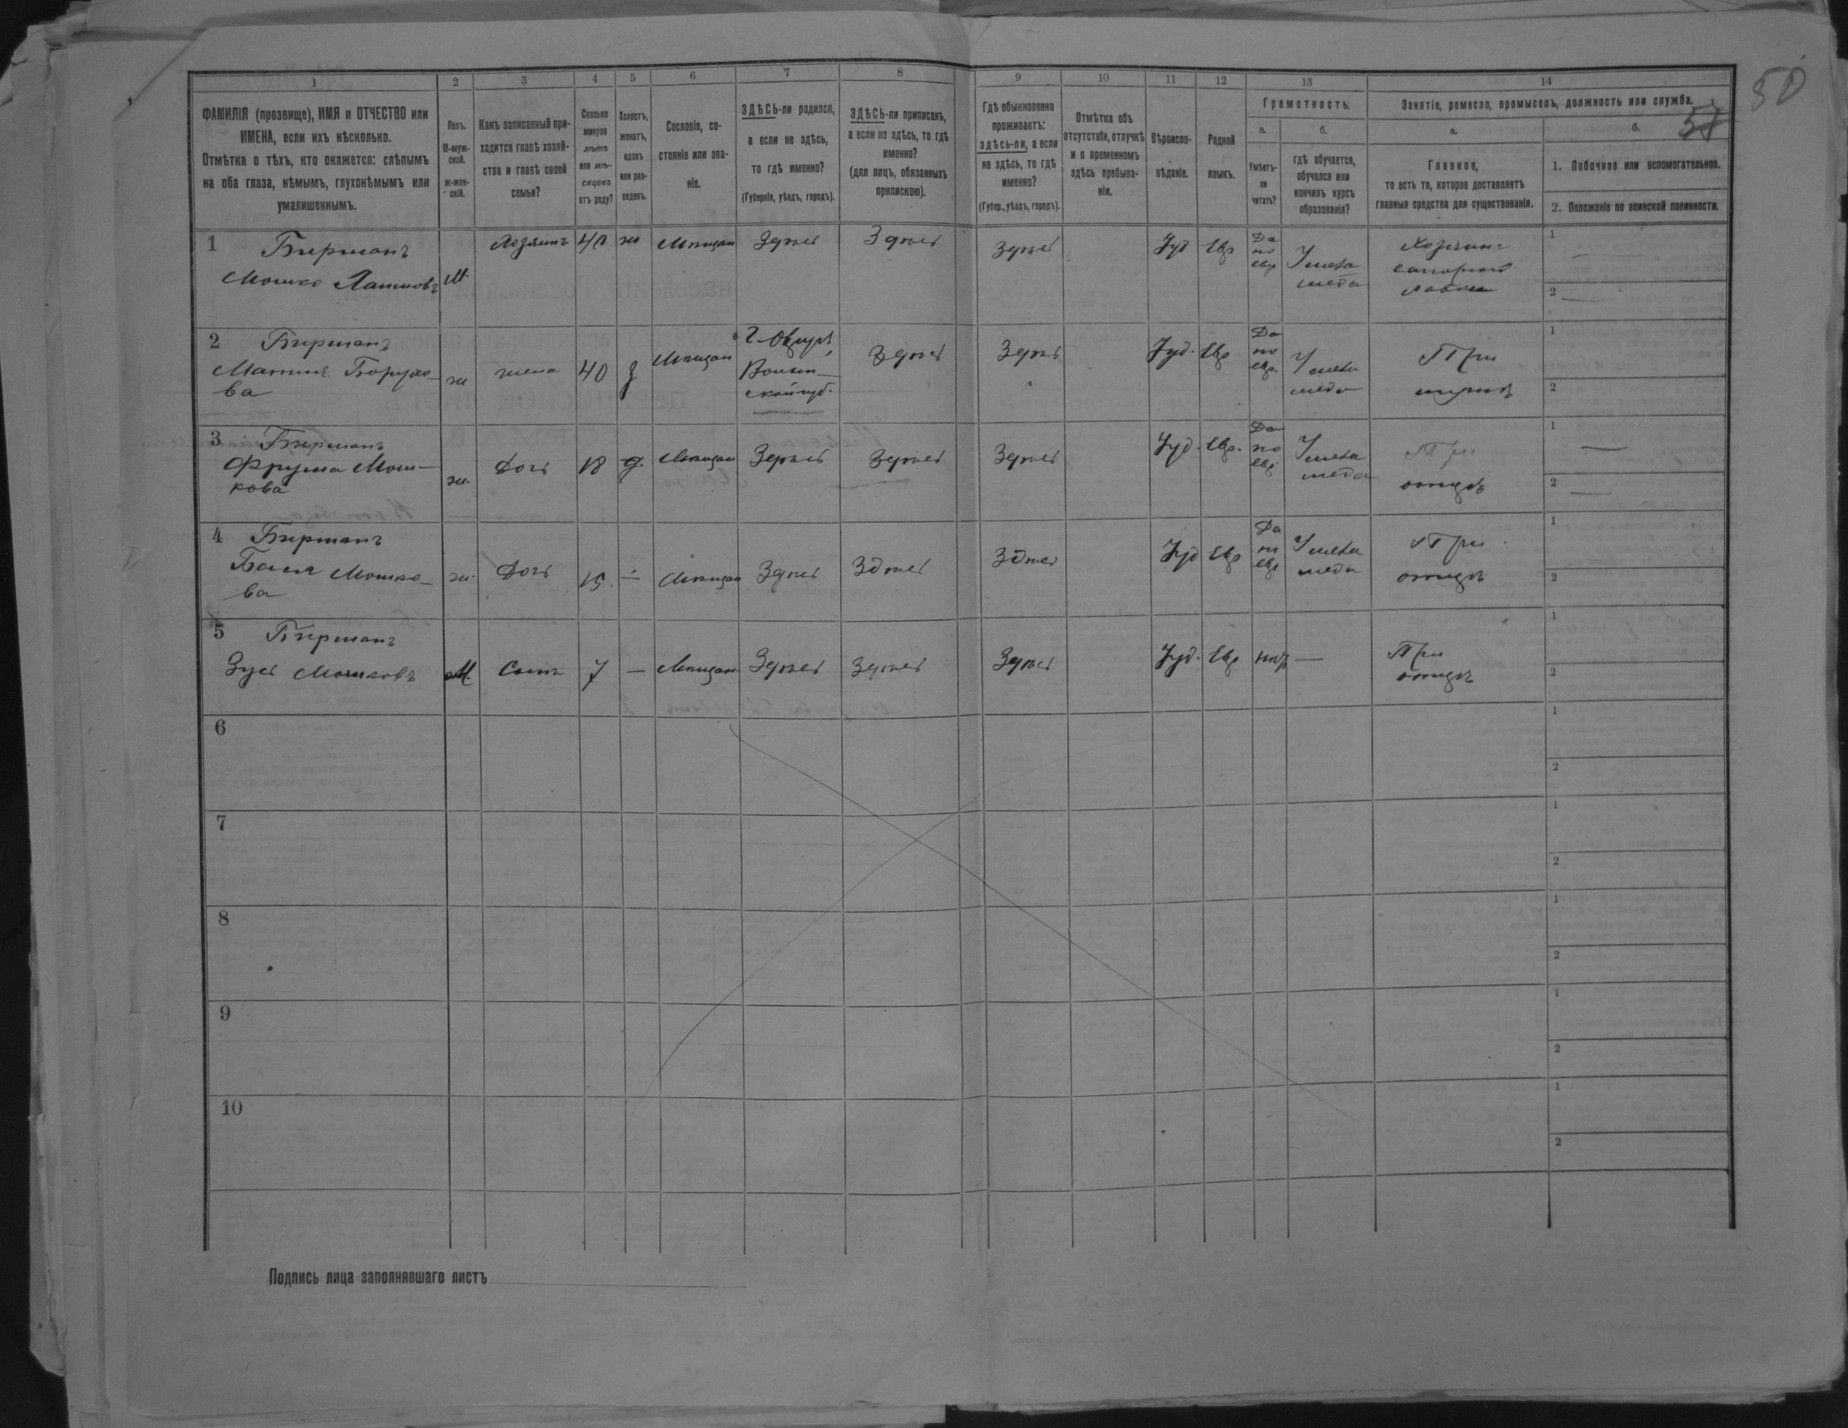 50
57
1 2 3 4 5 6 7 8 9 10 11 12 13 14
ФАМИЛІЯ (прозвище), ИМЯ и ОТЧЕСТВО или
ИМЕНА, если ихъ нѣсколько.
Отмѣтка о тѣхъ, кто окажется: слѣпымъ
на оба глаза, нѣмымъ, глухонѣмымъ или
умалишеннымъ.
Полъ.
М-муж-
ской.
ж-жен-
скій.
Какъ записанный при-
ходится главѣ хозяй-
ства и главѣ своей
семьи?
Сколько
минуло
лѣтъ
или мѣ-
сяцевъ
отъ роду?
Холостъ,
женатъ,
вдовъ
или раз-
веденъ.
Сословіе, со-
стояніе или зва-
ніе.
ЗДѢСЬ-ли родился,
а если не здѣсь,
то гдѣ именно?
(Губернія, уѣздъ, городъ).
ЗДѢСЬ-ли приписанъ,
а если не здѣсь, то гдѣ
именно?
(для лицъ, обязанныхъ
припискою).
Гдѣ обыкновенно
проживаетъ:
здѣсь-ли, а если
не здѣсь, то гдѣ
именно?
(Губер., уѣздъ, городъ).
Отмѣтка объ
отсутствіи, отлучкѣ
и о временномъ
здѣсь пребыва-
ніи.
Вѣроиспо-
вѣданіе.
Родной
языкъ.
Грамотность.
а.
Умѣетъ-
ли
читать?
б.
гдѣ обучается,
обучался или
кончилъ курсъ
образованія?
Занятіе, ремесло, промыселъ, должность или служба.
а.
Главное,
то есть то, которое доставляетъ
главныя средства для существованія.
б.
1. Побочное или вспомогательное.
2. Положеніе по воинской повинности.
1 Берманъ
Мошко
М. Хозяинъ 40 ж Мѣщан Здѣсь Здѣсь Здѣсь Іуд Евр
Да
по
евр
У мела
меда
Хозяинъ
лавки
1
2
2 Берманъ
Борухо-
ва
ж жена 40 з Мѣщан
г. Овручъ,
Волын-
ской губ.
Здѣсь Здѣсь Іуд. Евр
Да
по
евр.
У мела
меда
При
мужѣ
1
2
3 Берманъ
Фрума Мош-
кова
ж. Дочь 18 д. Мѣщан Здѣсь Здѣсь Здѣсь Іуд. Евр.
Да
по
евр
У мела
меда
При
отцѣ
1 —
2 —
4 Берманъ
Бася Мошко-
ва
ж. Дочь 15. — Мѣщан Здѣсь Здѣсь Здѣсь Іуд Евр
Да
по
евр
У мела
меда
При
отцѣ
1
2
5 Берманъ
Зусь Мошковъ
М. Сынъ 7 — Мѣщан Здѣсь Здѣсь Здѣсь Іуд. Евр нѣтъ —
При
отцѣ
1
2
6
1
2
7
1
2
8
1
2
9
1
2
10
1
2
Подпись лица заполнявшаго листъ